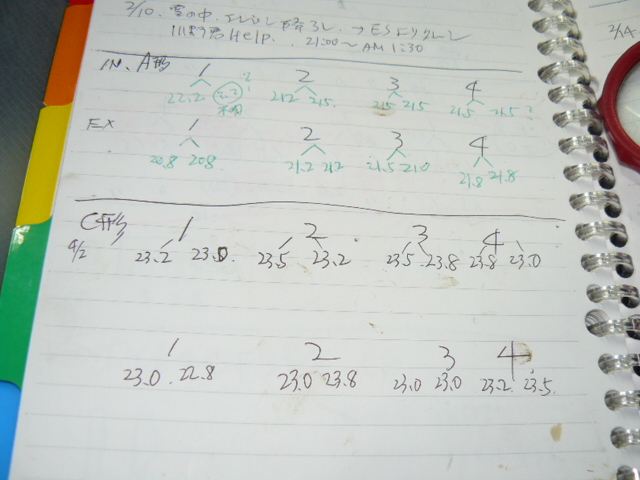 2/10. 雪の中、エンジン降ろし →ES
川野君Help. 21:00~AM 1:30
IN. A形 1 2 3 4
22.2 21.2 21.5. 21.5 21.5 21.5 21.5?
EX 1 2 3 4
20.8 20.8 21.2 21.2 21.5 21.0 21.8 21.8
C形 1 2 3 4
9/2 23.2 23.0. 23.5 23.2 23.5 23.8 23.8 23.0
1 2 3 4
23.0 22.8 23.0 23.8 23.0 23.0 23.2 23.5.
2/4